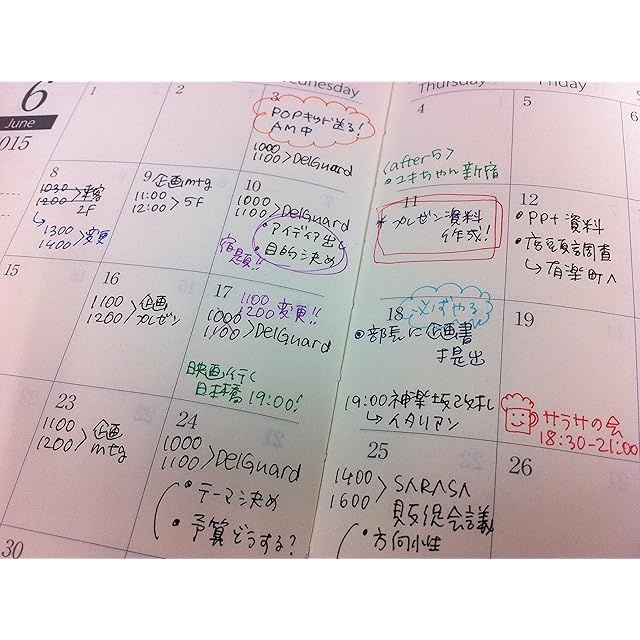 6
June
015
Wednesday
Thursday
Friday
1
2
3
POPキット送る!
AM中
1000
1100>DelGuard
4
<after5>
・ユキちゃん新宿
5
6
8
1030
1200>来客
2F
↳1300
1400>変更
9
企画mtg
11:00
12:00>5F
10
1000
1100>DelGuard
・アイディア出し
・目的決め
宿題!!
11
*プレゼン資料
作成!
12
・PPt資料
・店頭調査
↳有楽町へ
15
16
1100
1200>企画
プレゼン
17
1100
1200変更!!
1000
1100>DelGuard
映画行く
日本橋19:00!
18
必ずやる
・部長に企画書
提出
19:00神楽坂
↳イタリアン
19
サラサの会
18:30-21:00
23
1100
1200>企画
mtg
24
1000
1100>DelGuard
・テーマ決め
・予算どうする?
25
1400
1600>SARASA
販促会議
・方向性
26
30